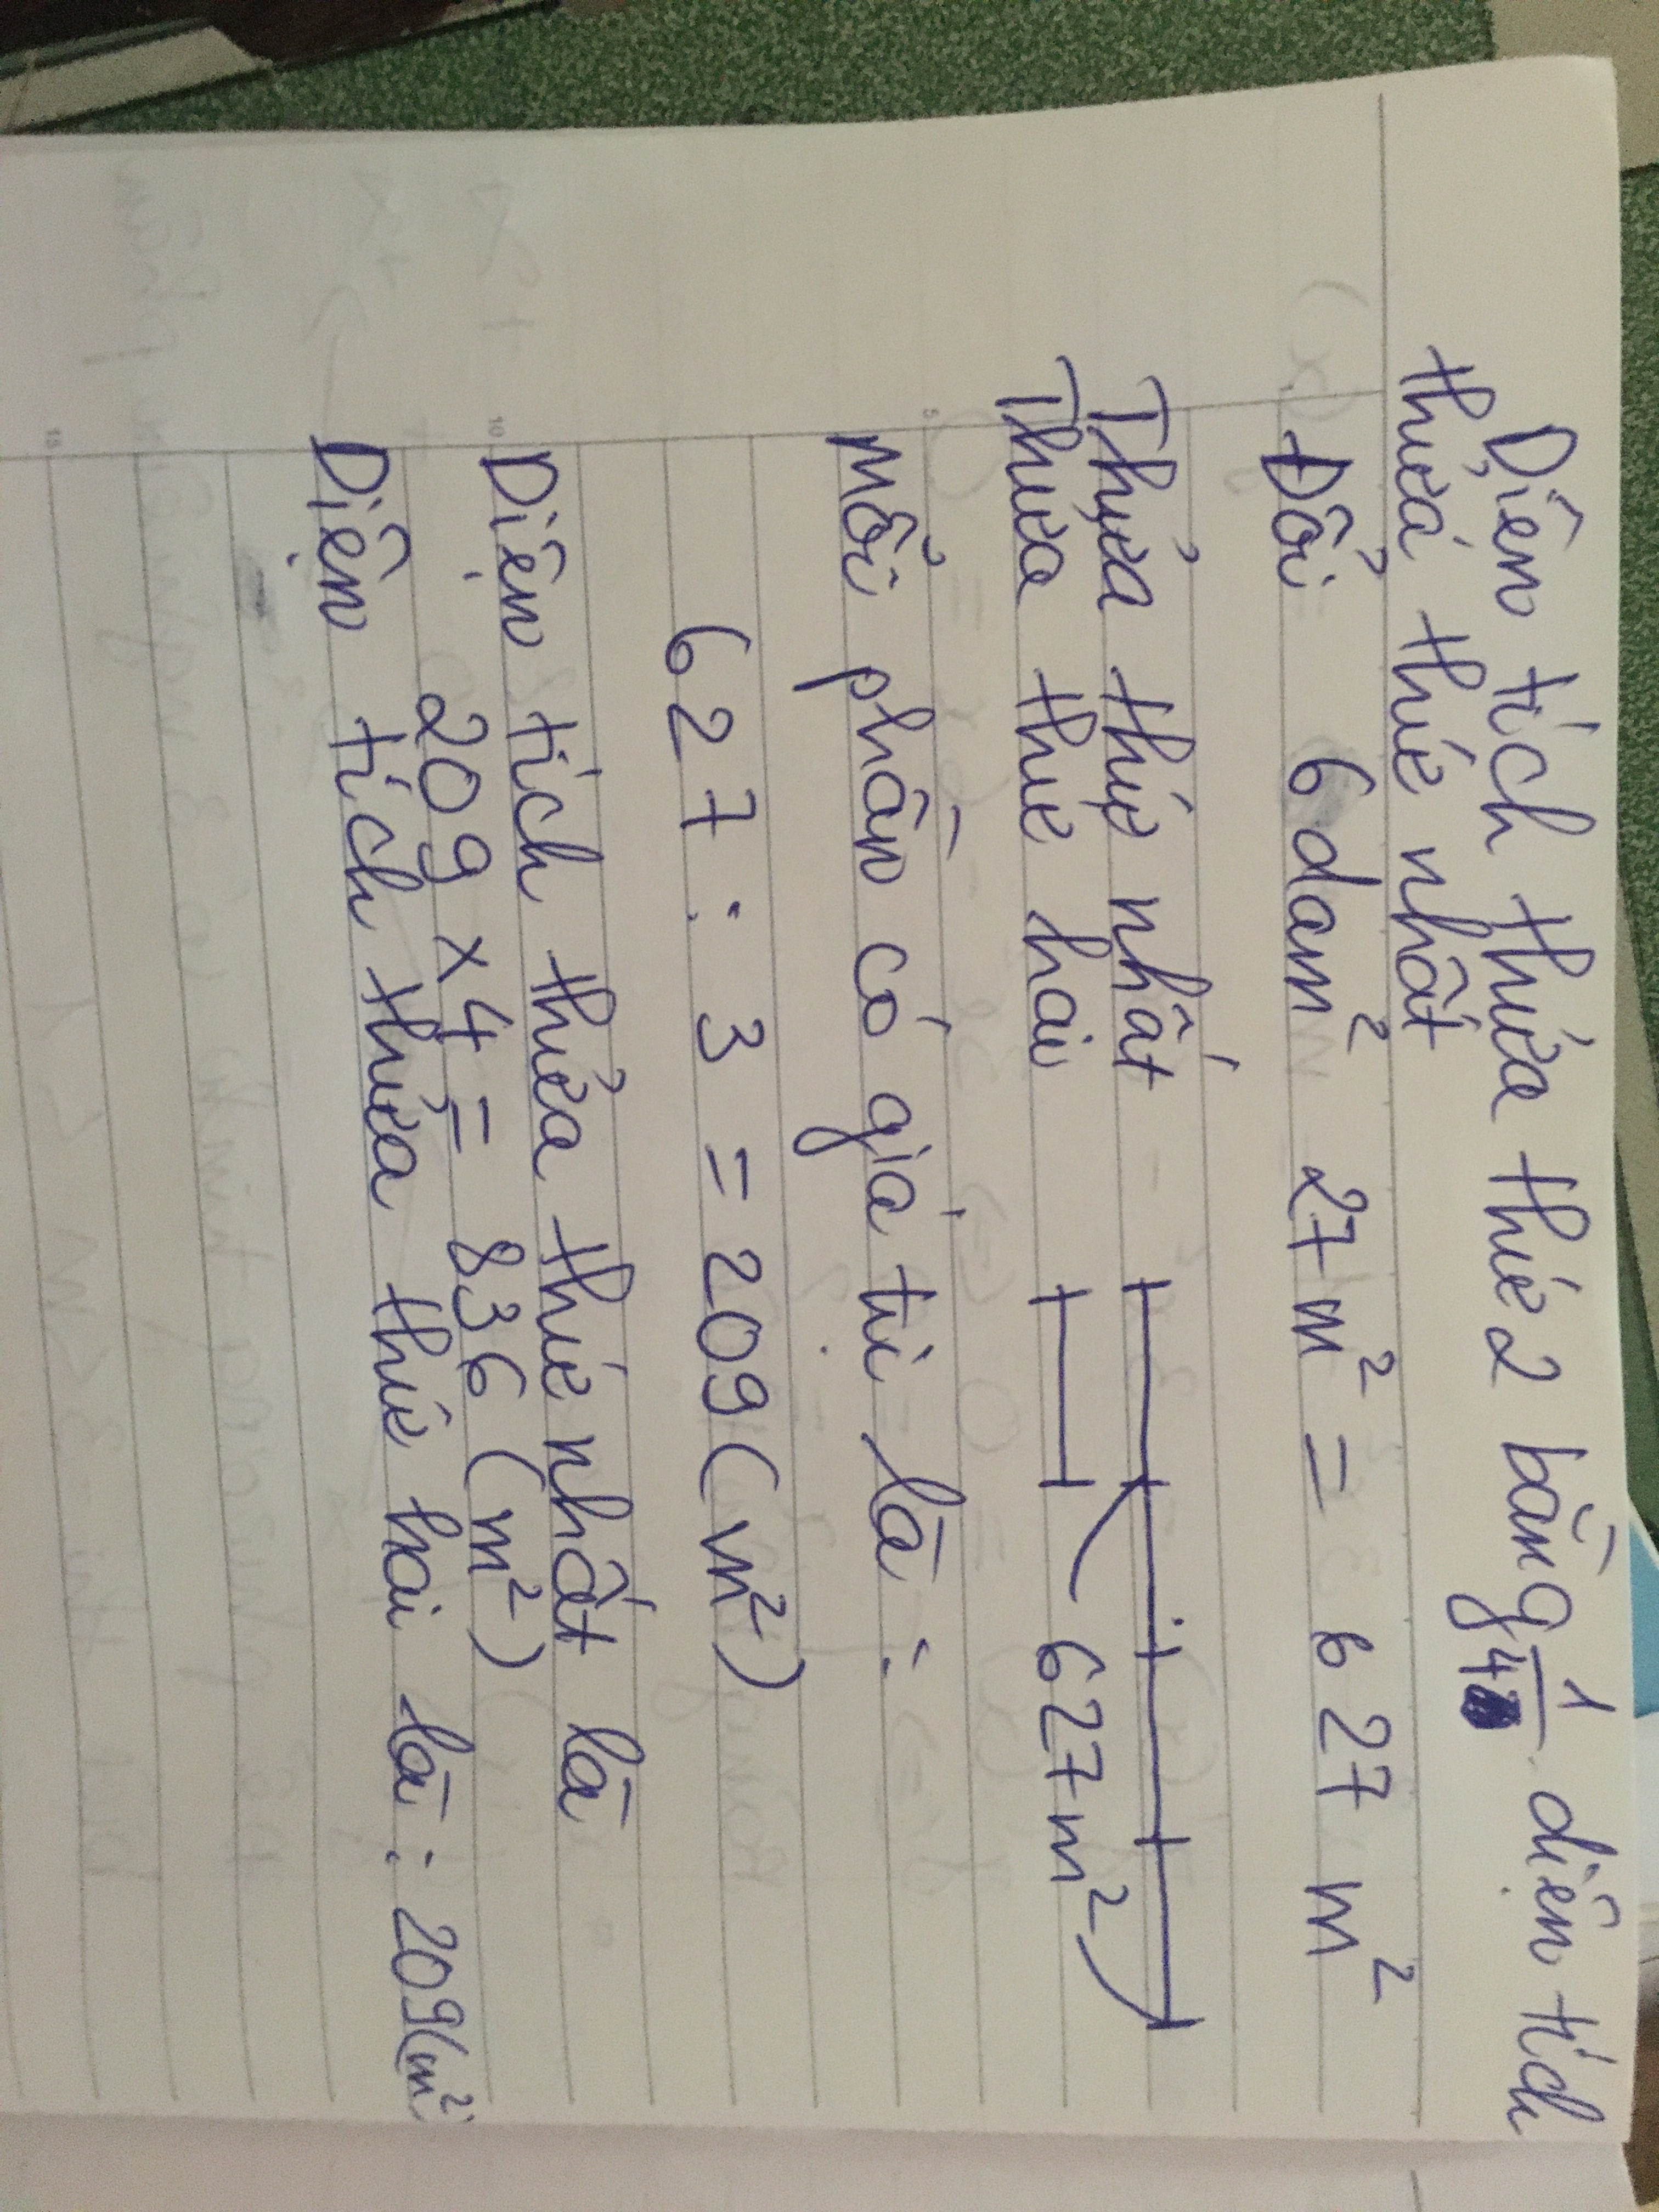 Diện tích thửa thứ 2 bằng 1/4 diện tích
thửa thứ nhất
Đổi 6 dam² 27 m² = 627 m²
Thửa thứ nhất
Thửa thứ hai 627 m²
Mỗi phần có giá trị là :
627 : 3 = 209 (m²)
Diện tích thửa thứ nhất là
209 x 4 = 836 (m²)
Diện tích thửa thứ hai là : 209 (m²)